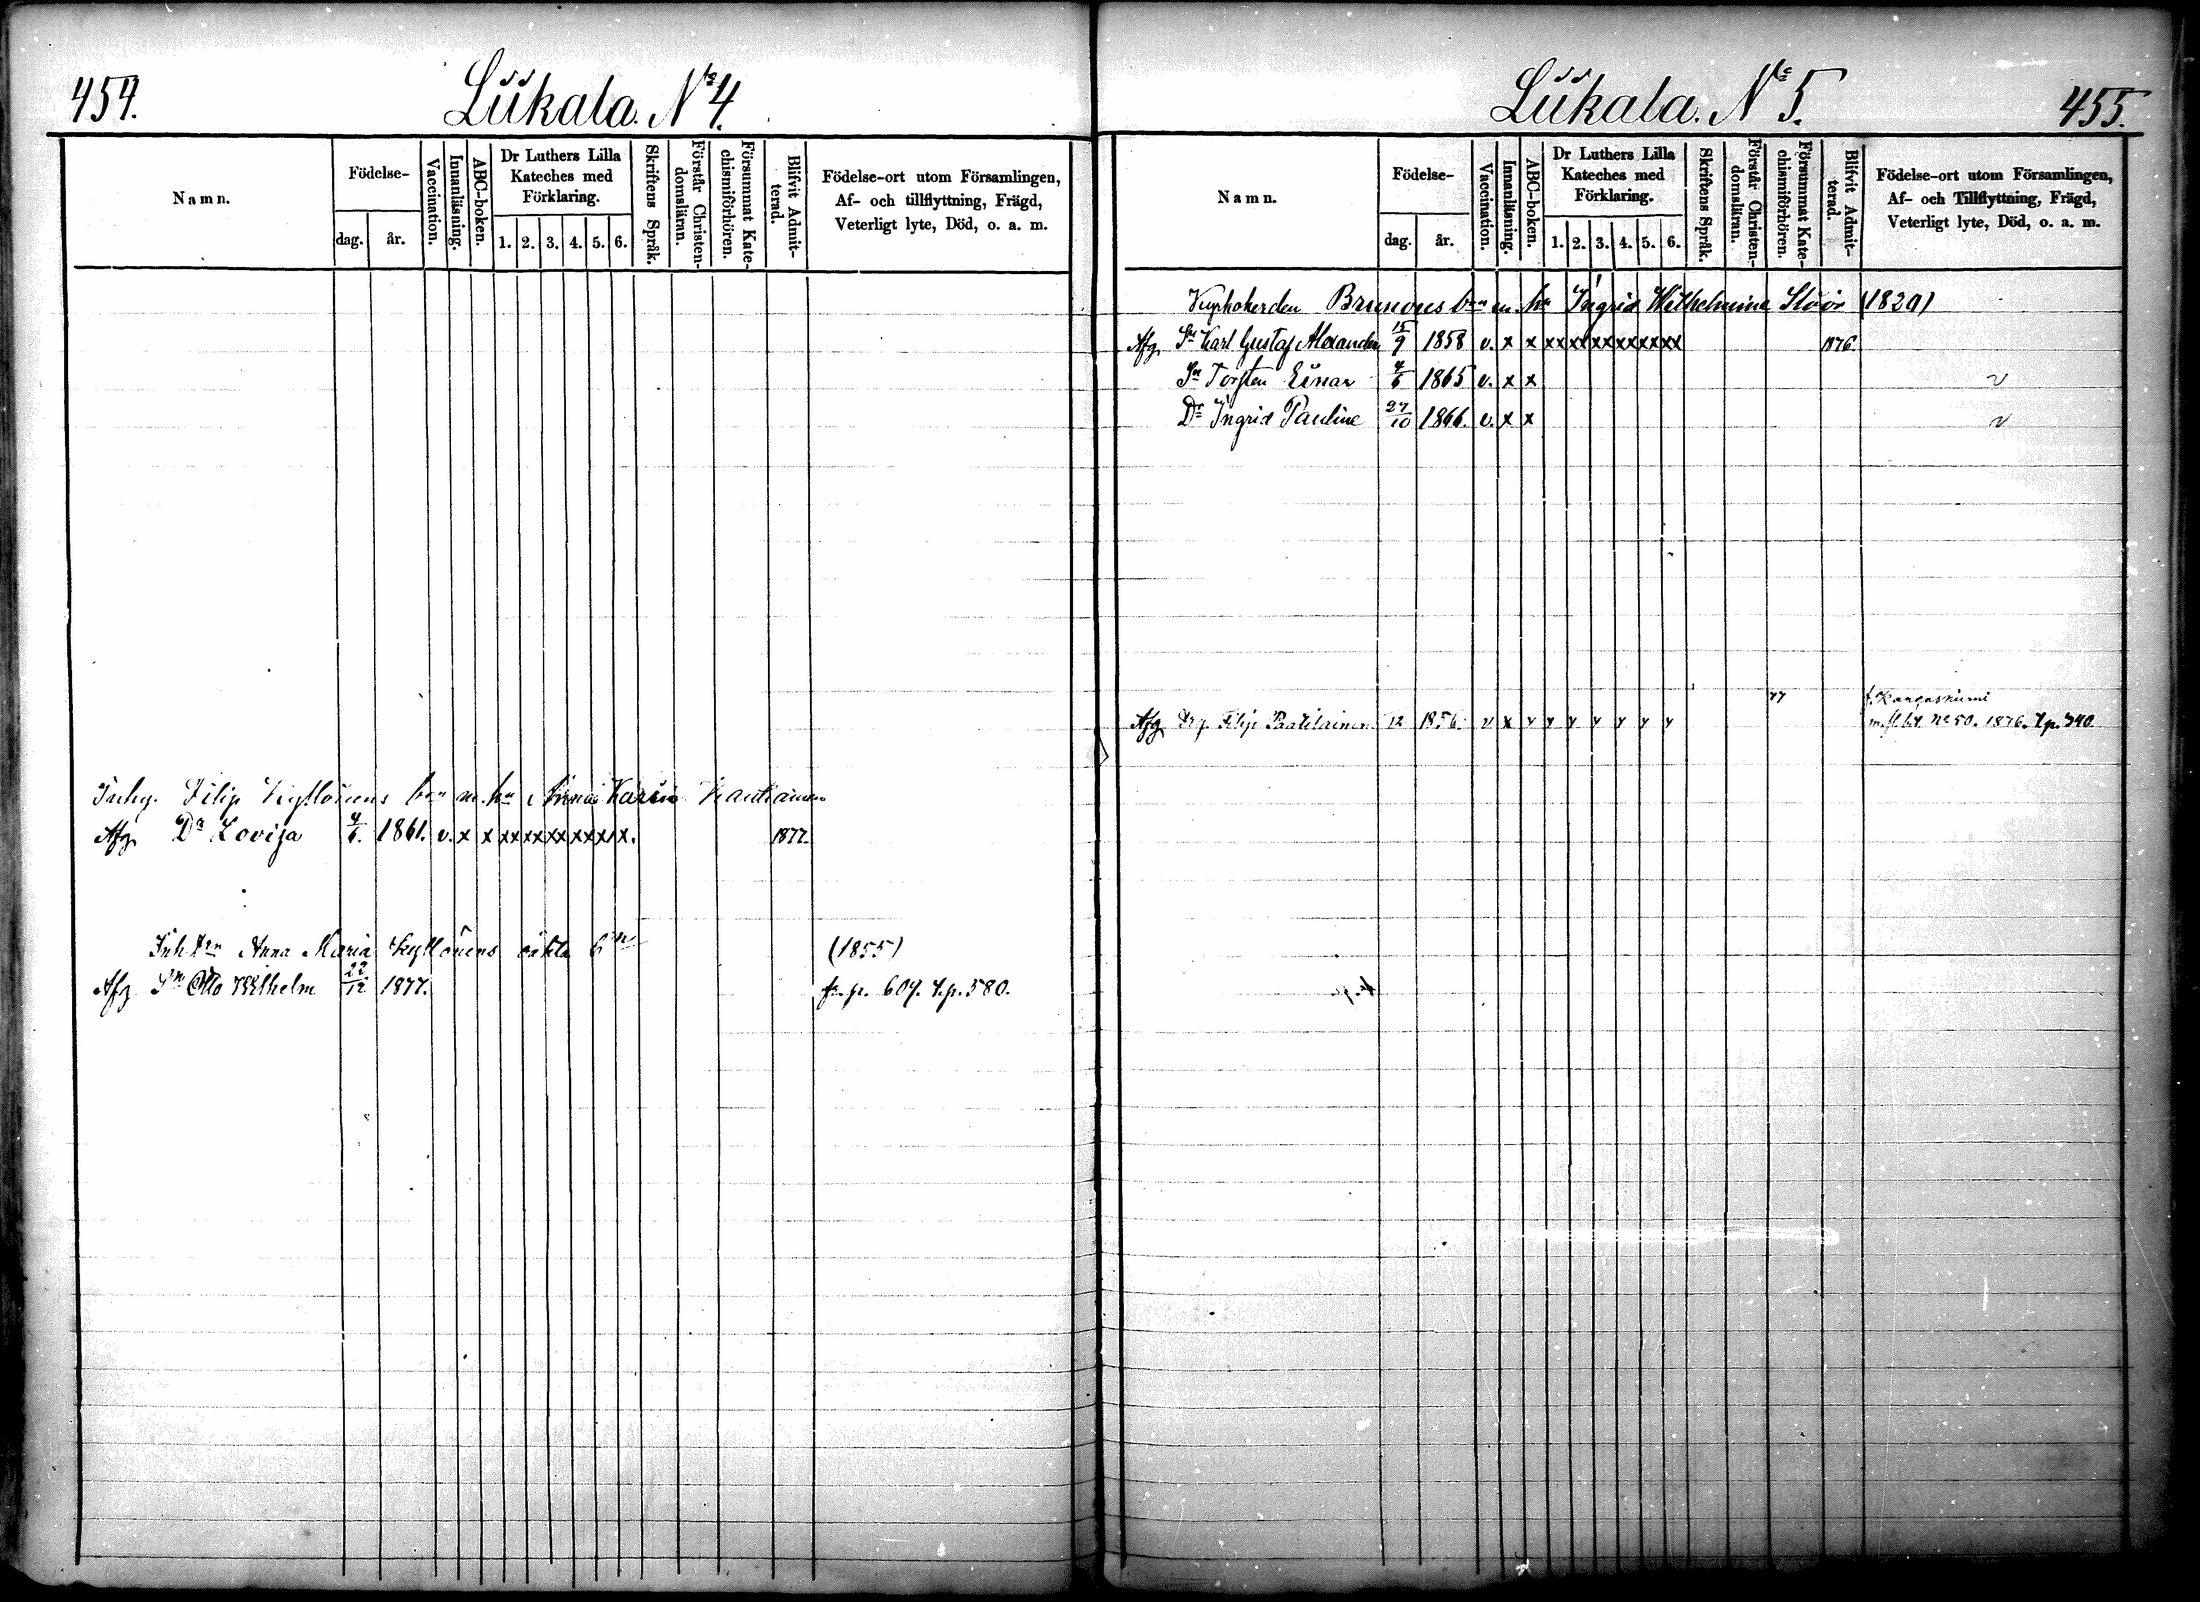 454.
Liikala. No 4.
Namn.
Födelse-
dag.
år.
Vaccination.
Innanläsning.
ABC-boken.
Dr Luthers Lilla
Kateches med
Förklaring.
1. 2. 3. 4. 5. 6.
Skriftens Språk.
Förstår Christen-
domsläran.
Försummat Kate-
chismiförhören.
Blifvit Admit-
terad.
Födelse-ort utom Församlingen,
Af- och tillflyttning, Frägd,
Veterligt lyte, Död, o. a. m.
Filip bn m. hu Anna Karin
Afg Dr Lovisa 4/6. 1861. v. x x xx xx xx xx xx x. 1877.
Anna Maria oäkta (1855)
Afg Sn Otto Wilhelm 22/12 1877. fr. p. 607. t.p. 580.
Liikala. No 5.
455.
Namn.
Födelse-
dag.
år.
Vaccination.
Innanläsning.
ABC-boken.
Dr Luthers Lilla
Kateches med
Förklaring.
1. 2. 3. 4. 5. 6.
Skriftens Språk.
Förstår Christen-
domsläran.
Försummat Kate-
chismiförhören.
Blifvit Admit-
terad.
Födelse-ort utom Församlingen,
Af- och Tillflyttning, Frägd,
Veterligt lyte, Död, o. a. m.
Brunous bn m. hu Ingrid Wilhelmina (1829)
Afg Sn Karl Gustaf Alexander 15/9 1858 v. x x xx xx xx xx xx xx 1876.
Sn Torsten Einar 4/6 1865 v. x x v
Dr Ingrid Pauline 27/10 1866. v. x x v
77 f. Kangasniemi
Afg Drg. Filip 12 1856. v x v v v v v v v m. fl. bt. No 50. 1876. t.p. 340